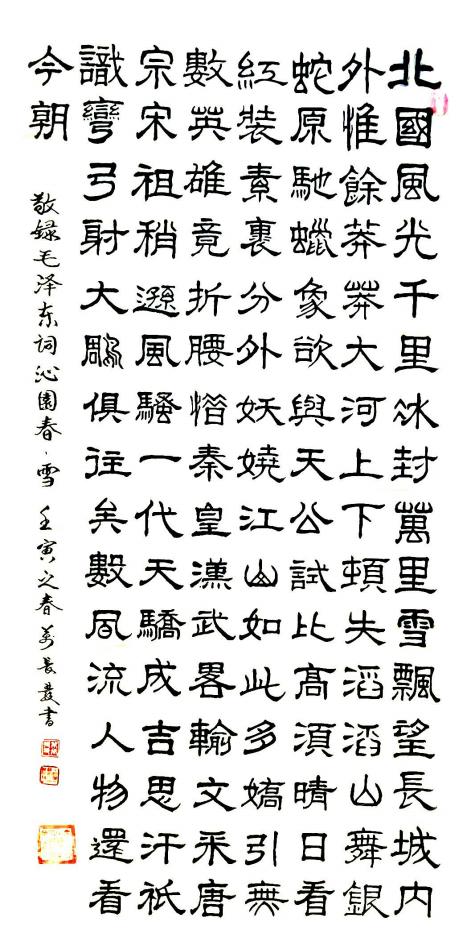 北國風光千里冰封萬里雪飄望長城内
外惟餘莽莽大河上下頓失滔滔山舞銀
蛇原馳蠟象欲與天公試比高須晴日看
紅裝素裹分外妖嬈江山如此多嬌引無
數英雄竟折腰惜秦皇漢武畧輸文采唐
宗宋祖稍遜風騷一代天驕成吉思汗祇
識彎弓射大鵰俱往矣數風流人物還看
今朝
敬録毛泽东词沁園春·雪 壬寅之春 書